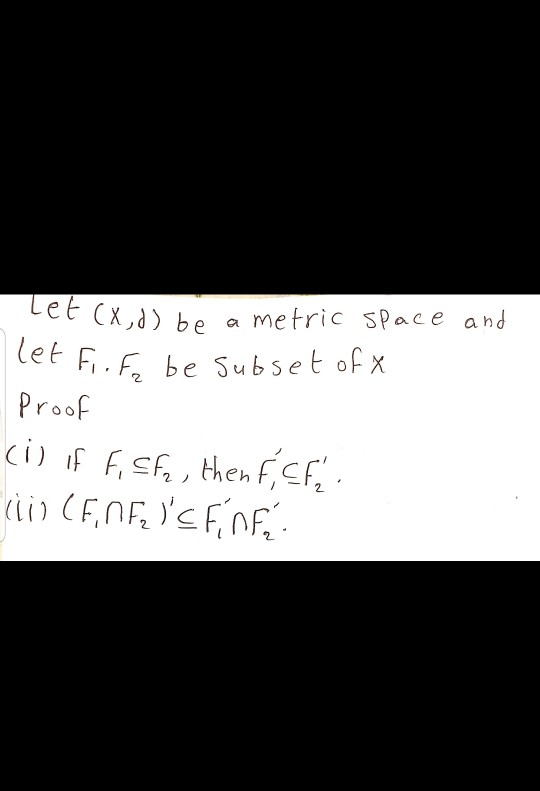 Let (X,d) be a metric space and
let F₁.F₂ be subset of X
Proof
(i) if F₁ ⊆ F₂, then F₁′ ⊆ F₂′.
(ii) (F₁∩F₂)′ ⊆ F₁′∩F₂′.